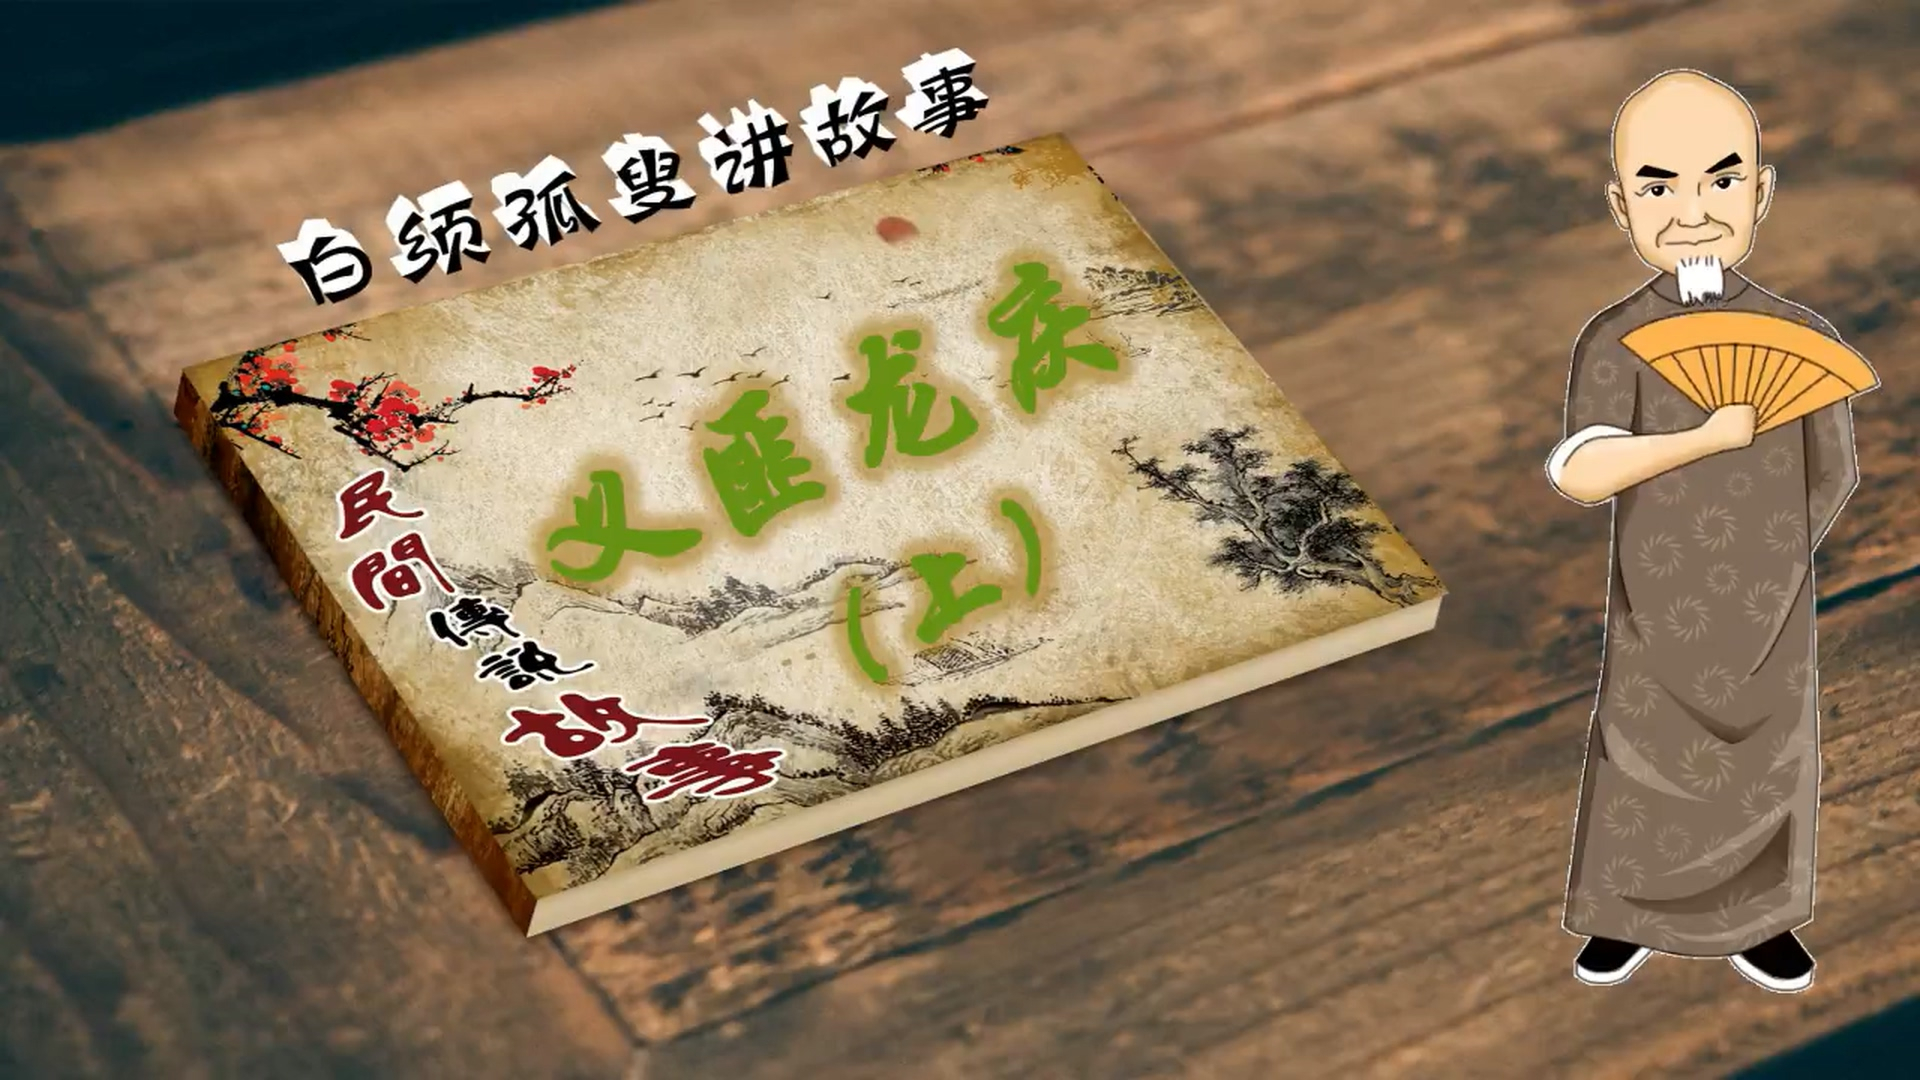 白须孤叟讲故事
义匪龙庆
(上)
民間傳說故事